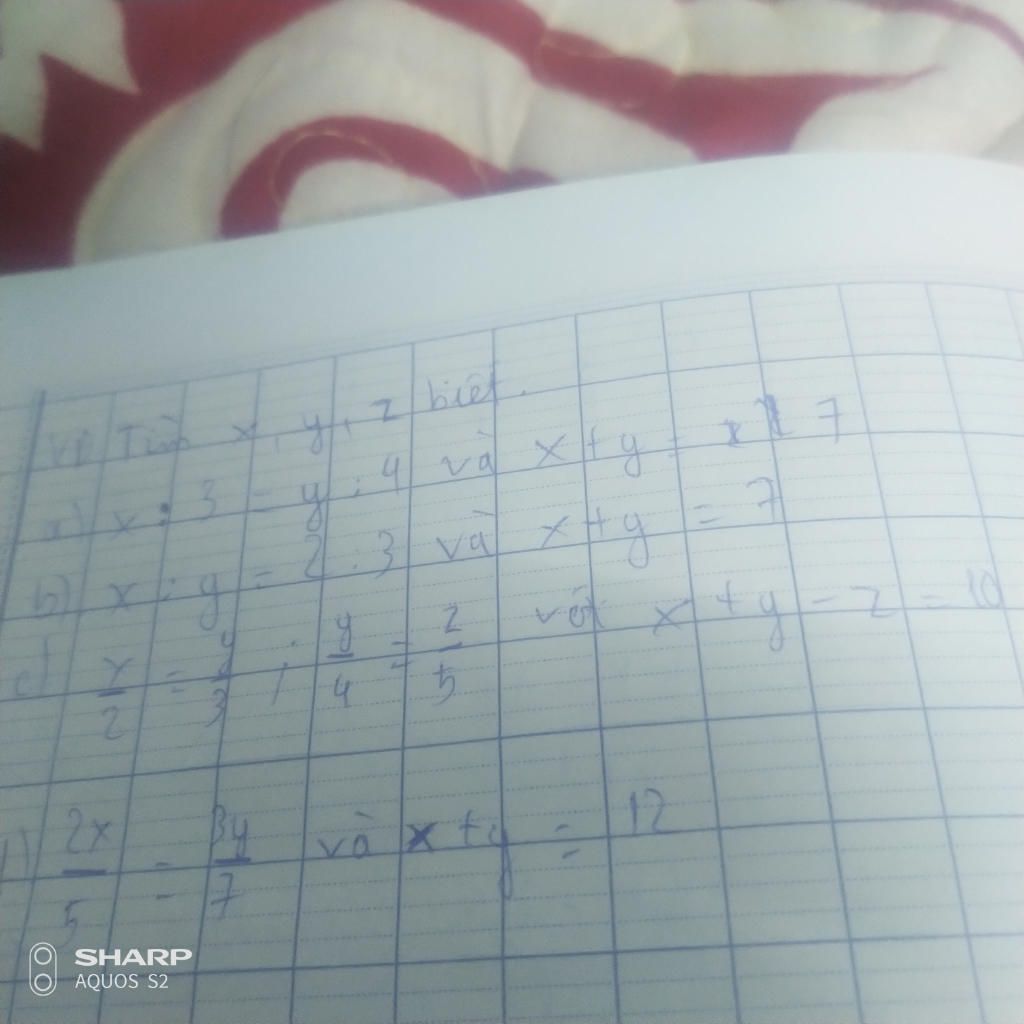 Tìm x, y, z biết.
a) x : 3 = y : 4 và x + y = 7
b) x : y = 2 : 3 và x + y = 7
c) x/2 = y/3 ; y/4 = z/5 và x + y - z = 10
d) 2x/5 = 3y/7 và x + y = 12
SHARP
AQUOS S2